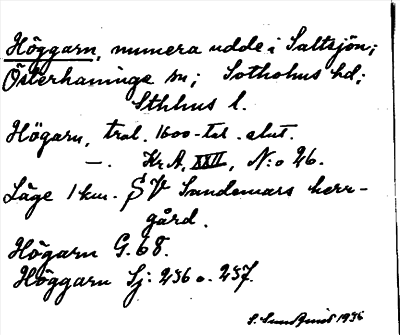 Höggarn, numera udde i Saltsjön;
Österhaninge sn; Sotholms hd;
Sthlms l.
Högarn, trol. 1600-tal. slut.
—. Kr. A. XXII, N:o 26.
Läge 1 km. SV Sandemars herr-
gård.
Högarn G. 68.
Höggarn Sj: 256 o. 257.
S. 1936